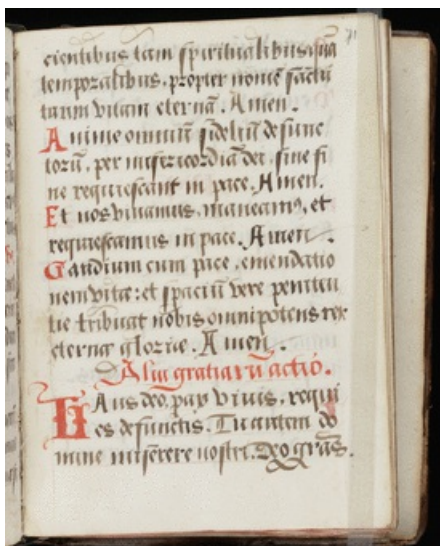 cientibus tam spiritualibus quā
temporalibus, propter nomē sāctū
tuum vitam eternā. Amen.
Anime omniū fideliū defunc
torū, per misericordiā dei, sine fi
ne requiescant in pace. Amen.
Et nos vivamus, maneamꝰ, et
requiescamus in pace. Amen.
Gaudium cum pace, emendatio
nem vitæ: et spaciū vere peniten
tie tribuat nobis omnipotens rex
eternæ gloriæ. Amen.
Alia gratiarū actio.
Laus deo, pax vivis, requi
es defunctis. Tu autem do
mine miserere nostri. Deo grās.